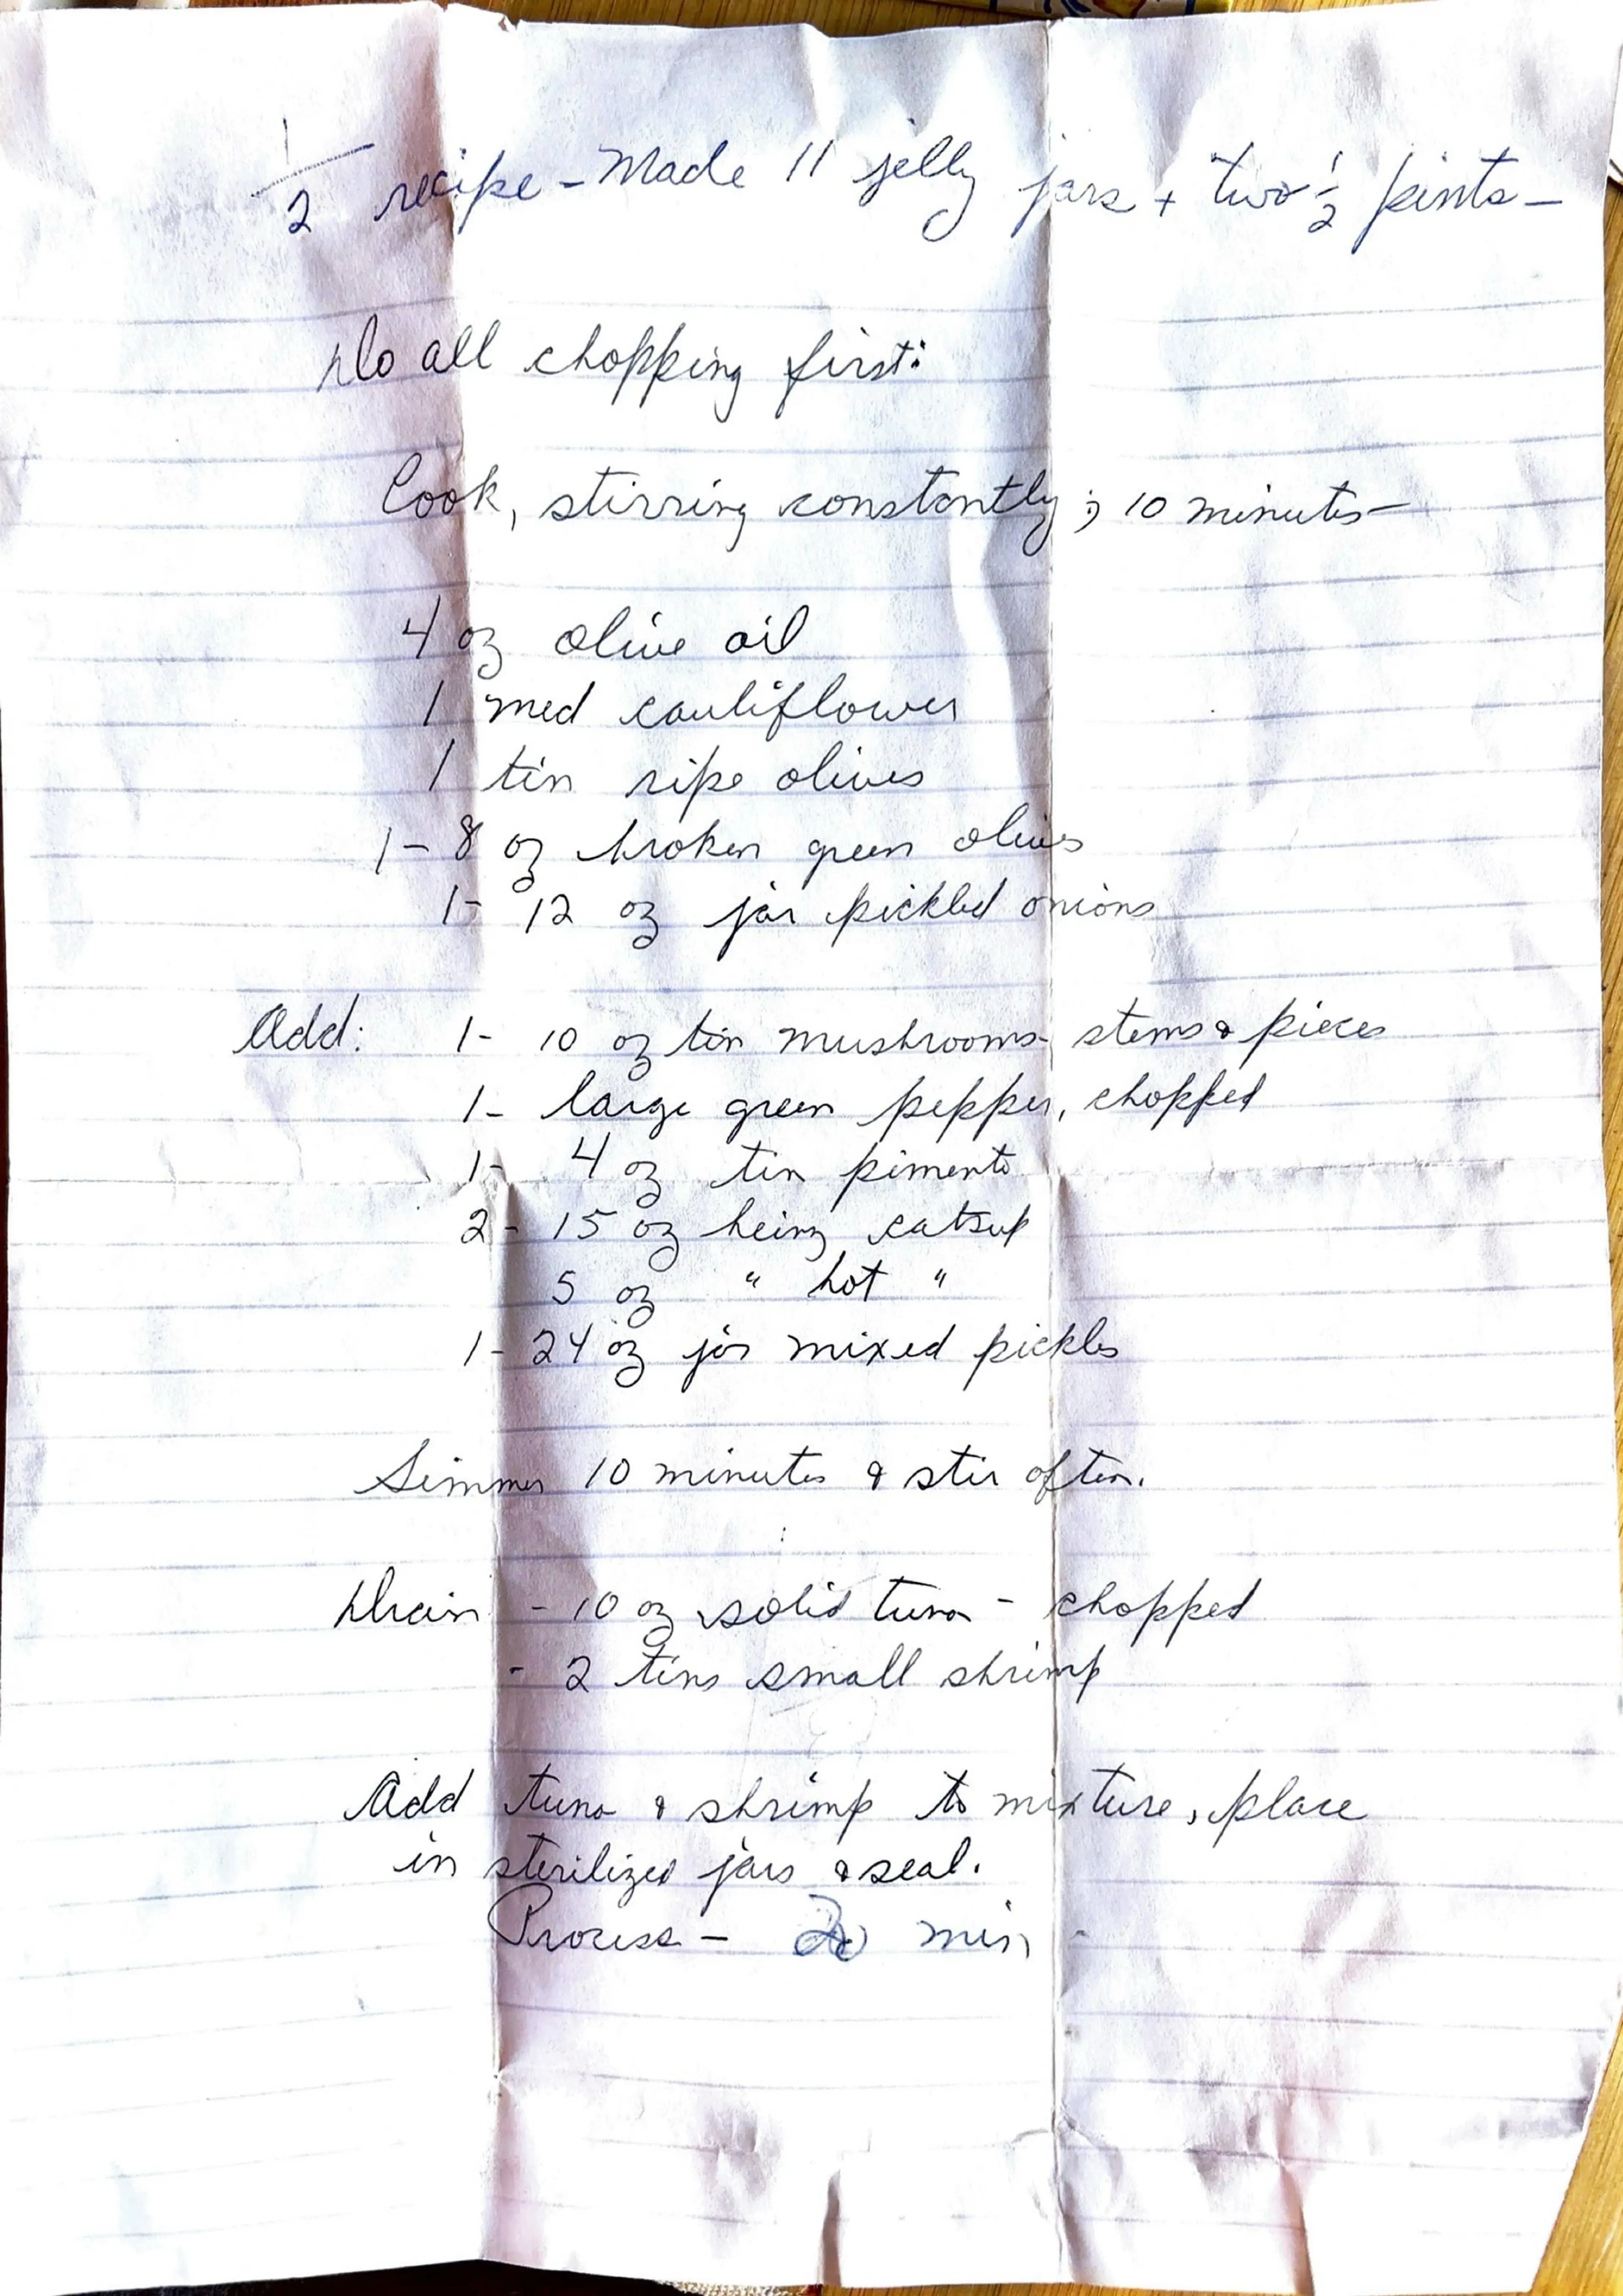 1/2 recipe - Made 11 jelly jars + two 1/2 pints -
Do all chopping first:
Cook, stirring constantly; 10 minutes -
4 oz olive oil
1 med cauliflower
1 tin ripe olives
1 - 8 oz broken green olives
1 - 12 oz jar pickled onions
Add: 1 - 10 oz tin mushrooms - stems & pieces
1 - large green pepper, chopped
1 - 4 oz tin pimento
2 - 15 oz heinz catsup
5 oz " hot "
1 - 24 oz jar mixed pickles
Simmer 10 minutes & stir often.
Drain - 10 oz solid tuna - chopped
- 2 tins small shrimp
Add tuna & shrimp to mixture, place
in sterilized jars & seal.
Process - min